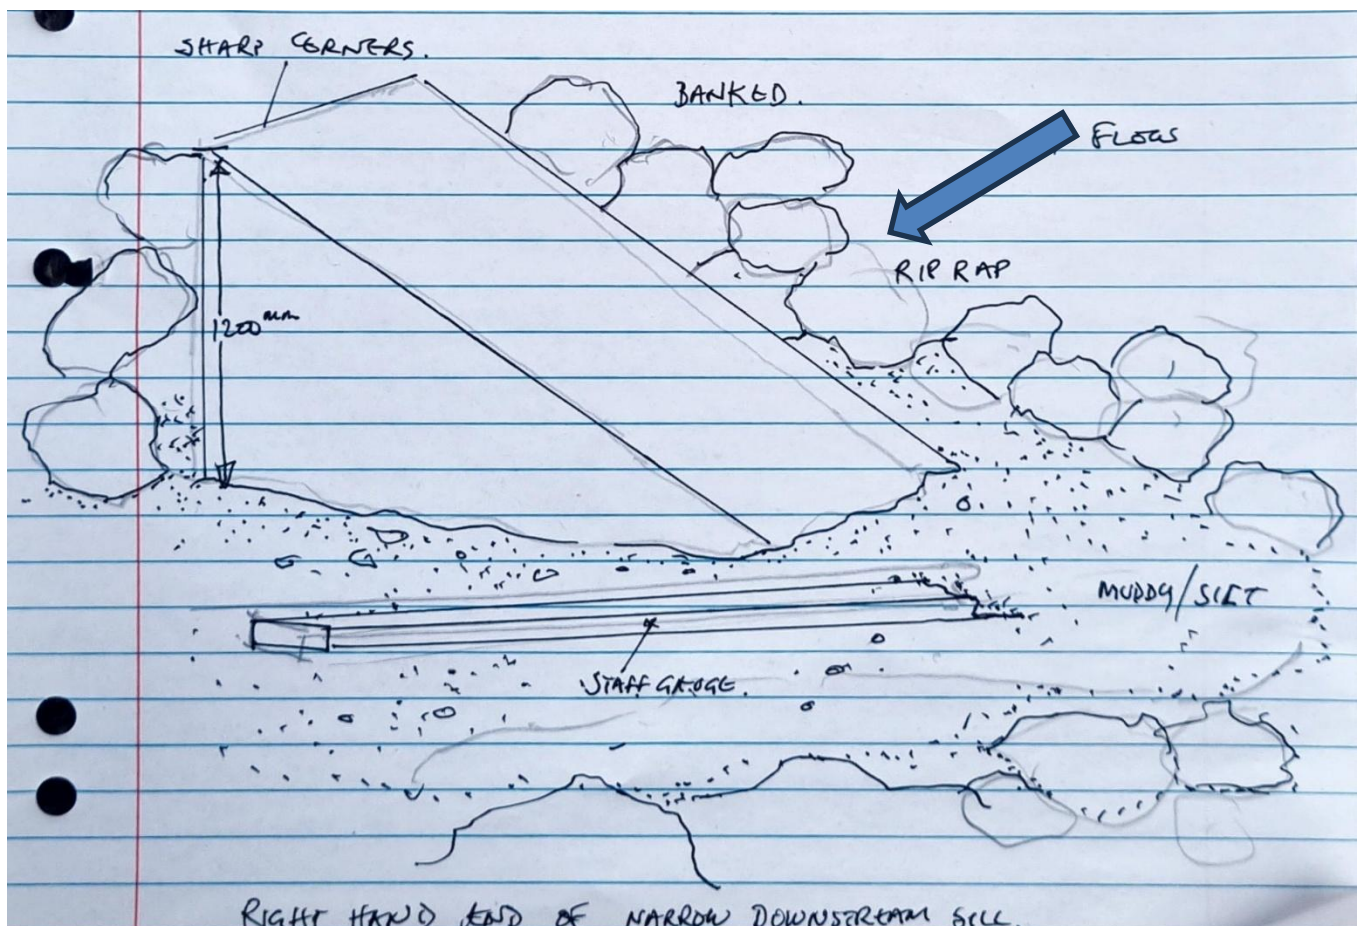 SHARP CORNERS.
BANKED.
FLOW
RIP RAP
1200mm
MUDDY/SILT
STAFF GAUGE.
RIGHT HAND END OF NARROW DOWNSTREAM SILL.